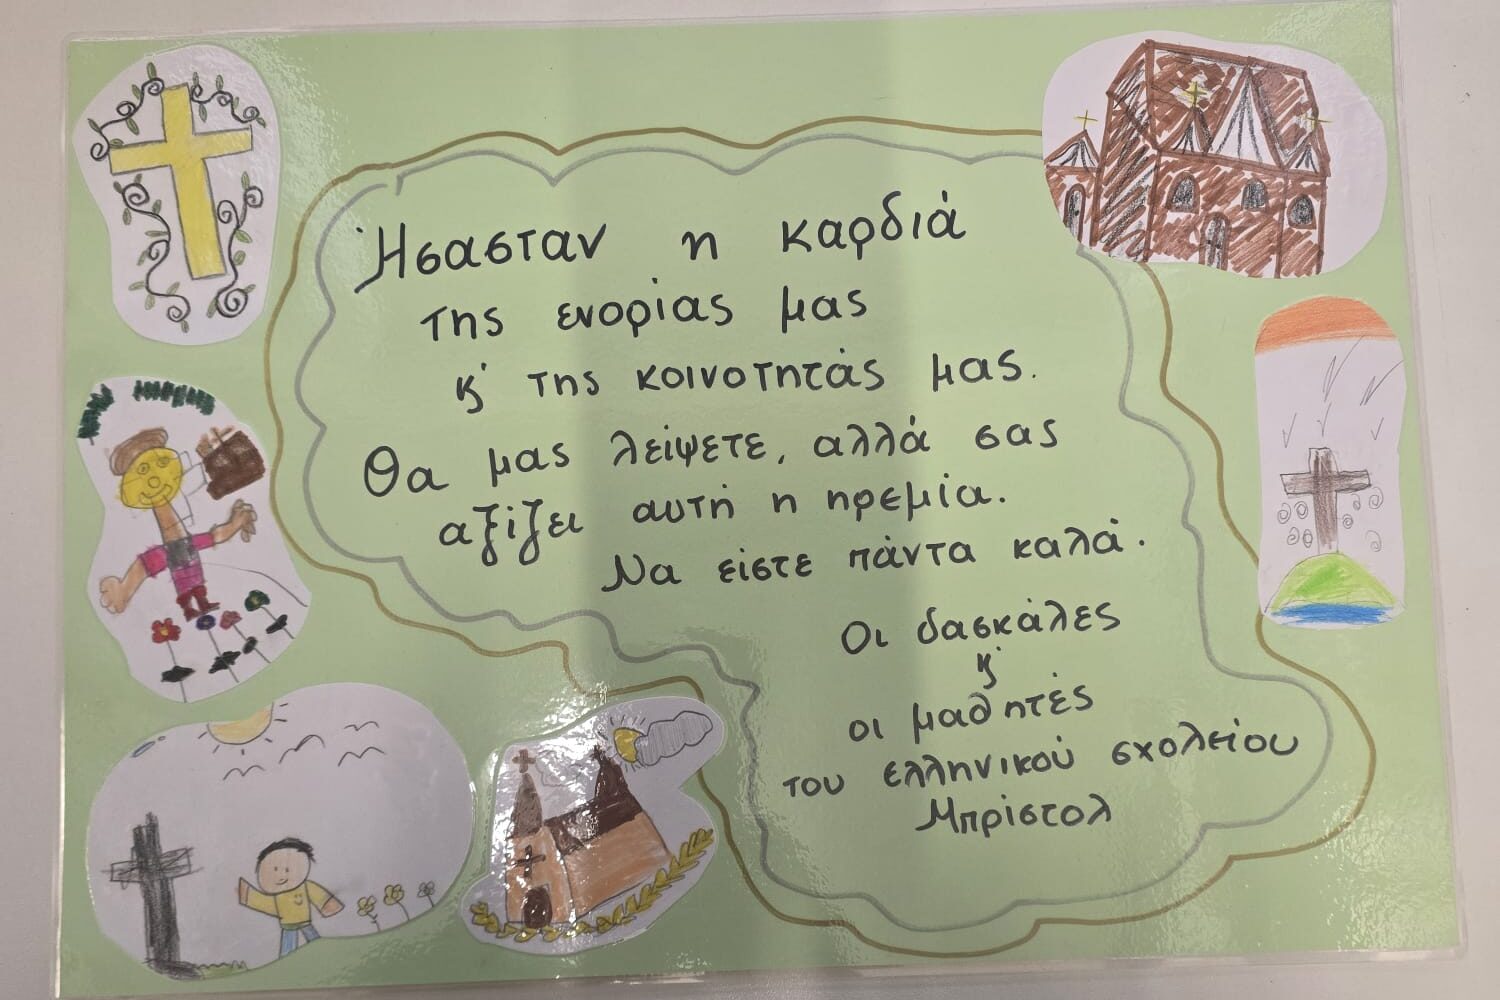 Ήσασταν η καρδιά
της ενορίας μας
κ' της κοινοτητάς μας.
Θα μας λείψετε, αλλά σας
αξίζει αυτή η ηρεμία.
Να είστε πάντα καλά.
Οι δασκάλες
κ'
οι μαθητές
του ελληνικού σχολείου
Μπρίστολ